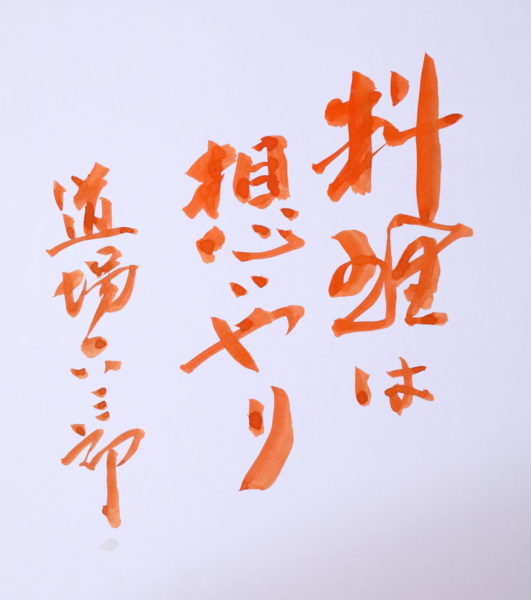 料理は
想いやり
道場六三郎